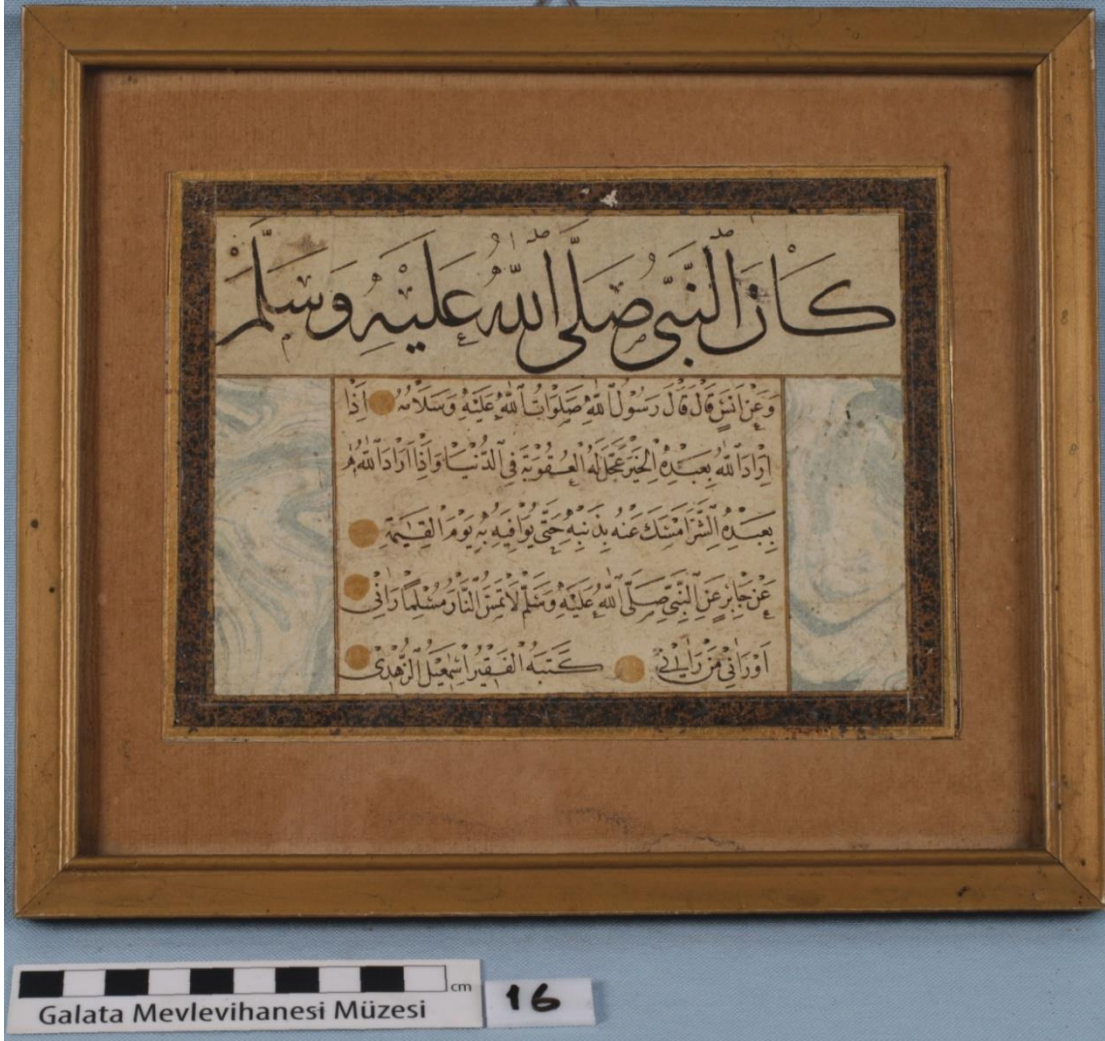 كَانَ النَّبِىُّ صَلَّى اللّٰهُ عَلَيْهِ وَسَلَّمَ
وَعَنْ اَنَسٍ قَالَ قَالَ رَسُولُ اللّٰهِ صَلَوَاتُ اللّٰهِ عَلَيْهِ وَسَلَامُهُ اِذَا
اَرَادَ اللّٰهُ بِعَبْدِهِ الْخَيْرَ عَجَّلَ لَهُ الْعُقُوبَةَ فِى الدُّنْيَا وَاِذَا اَرَادَ اللّٰهُ
بِعَبْدِهِ الشَّرَّ اَمْسَكَ عَنْهُ بِذَنْبِهِ حَتّٰى يُوَافِيَهُ بِهِ يَوْمَ الْقِيٰمَةِ
عَنْ جَابِرٍ عَنِ النَّبِىِّ صَلَّى اللّٰهُ عَلَيْهِ وَسَلَّمَ لَا تَمَسُّ النَّارُ مُسْلِمًا رَاٰنِى
اَوْ رَاٰى مَنْ رَاٰنِى كَتَبَهُ الْفَقِيرُ اِسْمٰعِيلُ الزُّهْدِى
cm
Galata Mevlevihanesi Müzesi
16